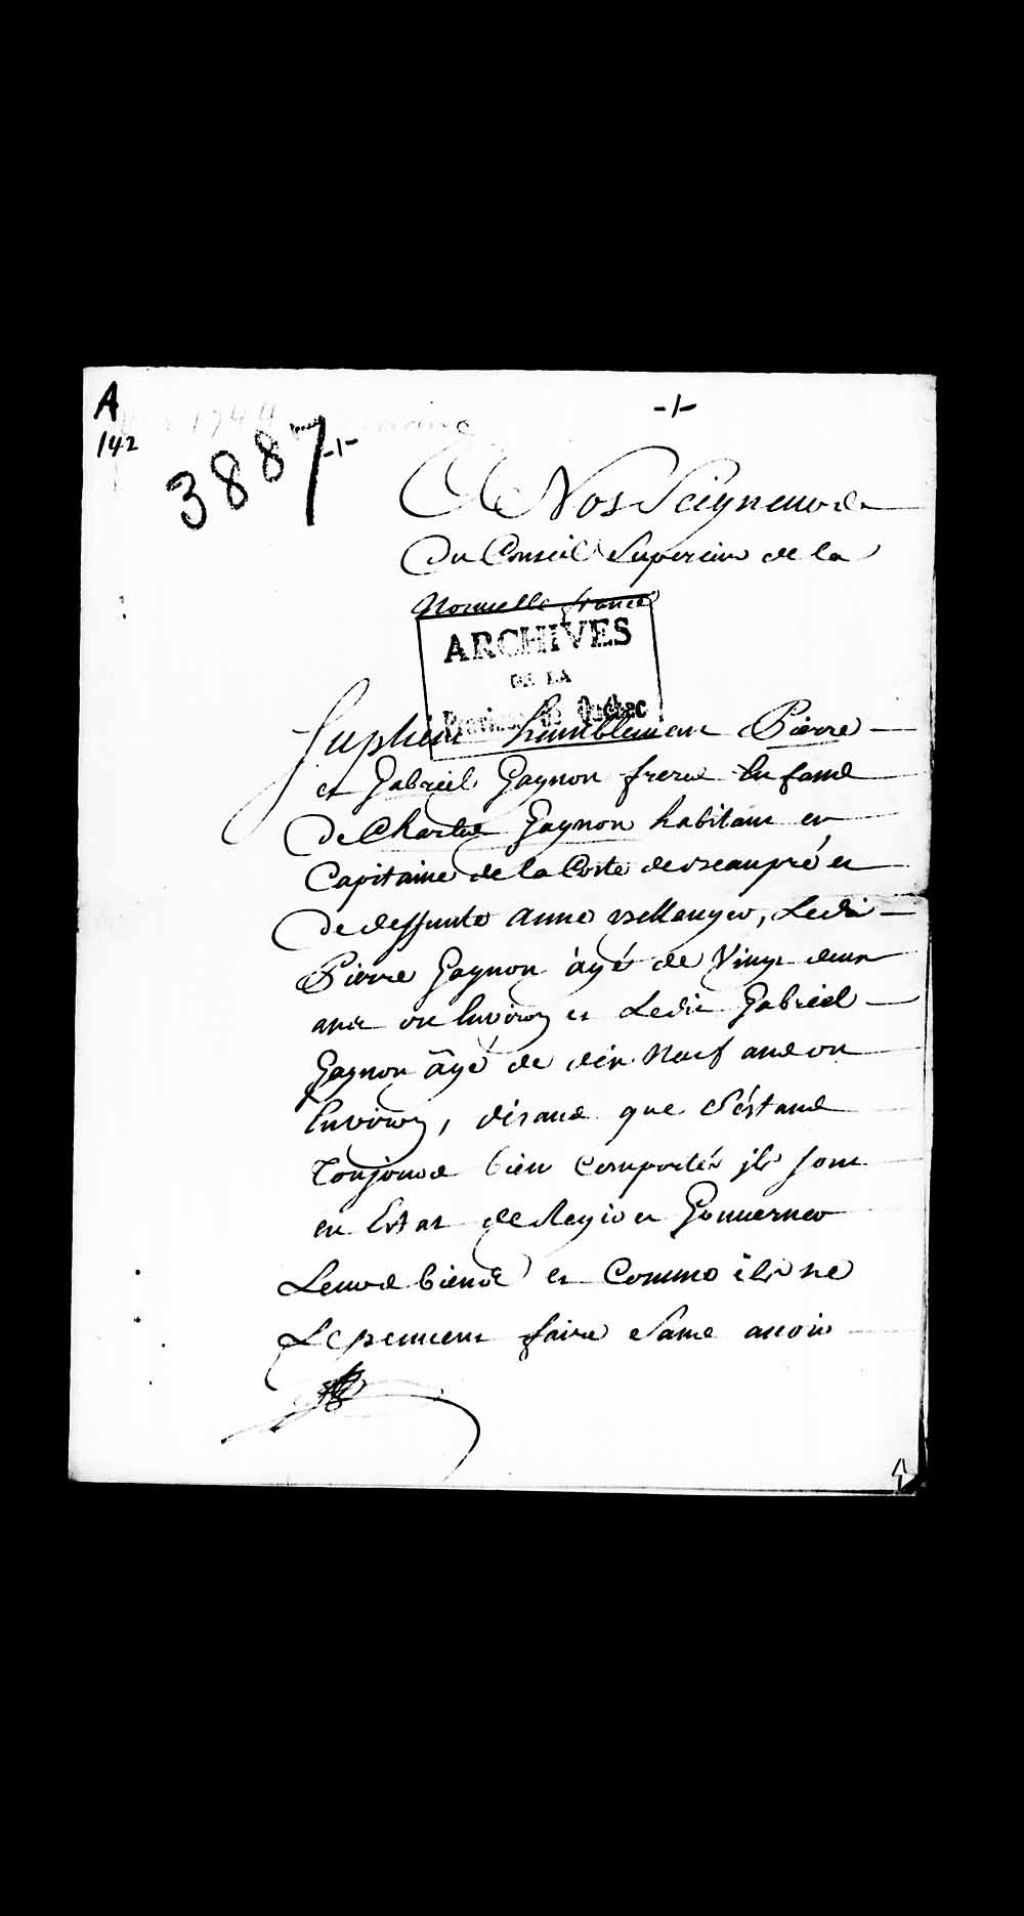 A
142
3887
-1-
-1-
A Nos Seigneurs
Du Conseil Superieur de la
Nouvelle france
ARCHIVES
DE LA
Province de Québec
Suplient humblement Pierre
et Gabriel Gagnon freres Enfans
De Charles Gagnon habitant et
Capitaine de la Coste de beaupré et
De deffunte anne Bellanger, Ledit
Pierre Gagnon âgé de Vingt deux
ans ou Environ et Ledit Gabriel
Gagnon âgé de dix Neuf ans ou
Environ, disant que s'éstans
Toujours bien comportés ils sont
en Estat de Regir et Gouverner
Leurs biens et Comme ils ne
Le peuvent faire sans avoir